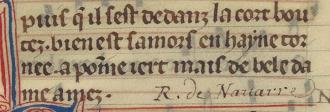 puis q̃ il sest dedanz la cort bou
tez. bien est samors en hayne tor
nee. a pome iert mais de bele da
me amez.
R. de Navarre